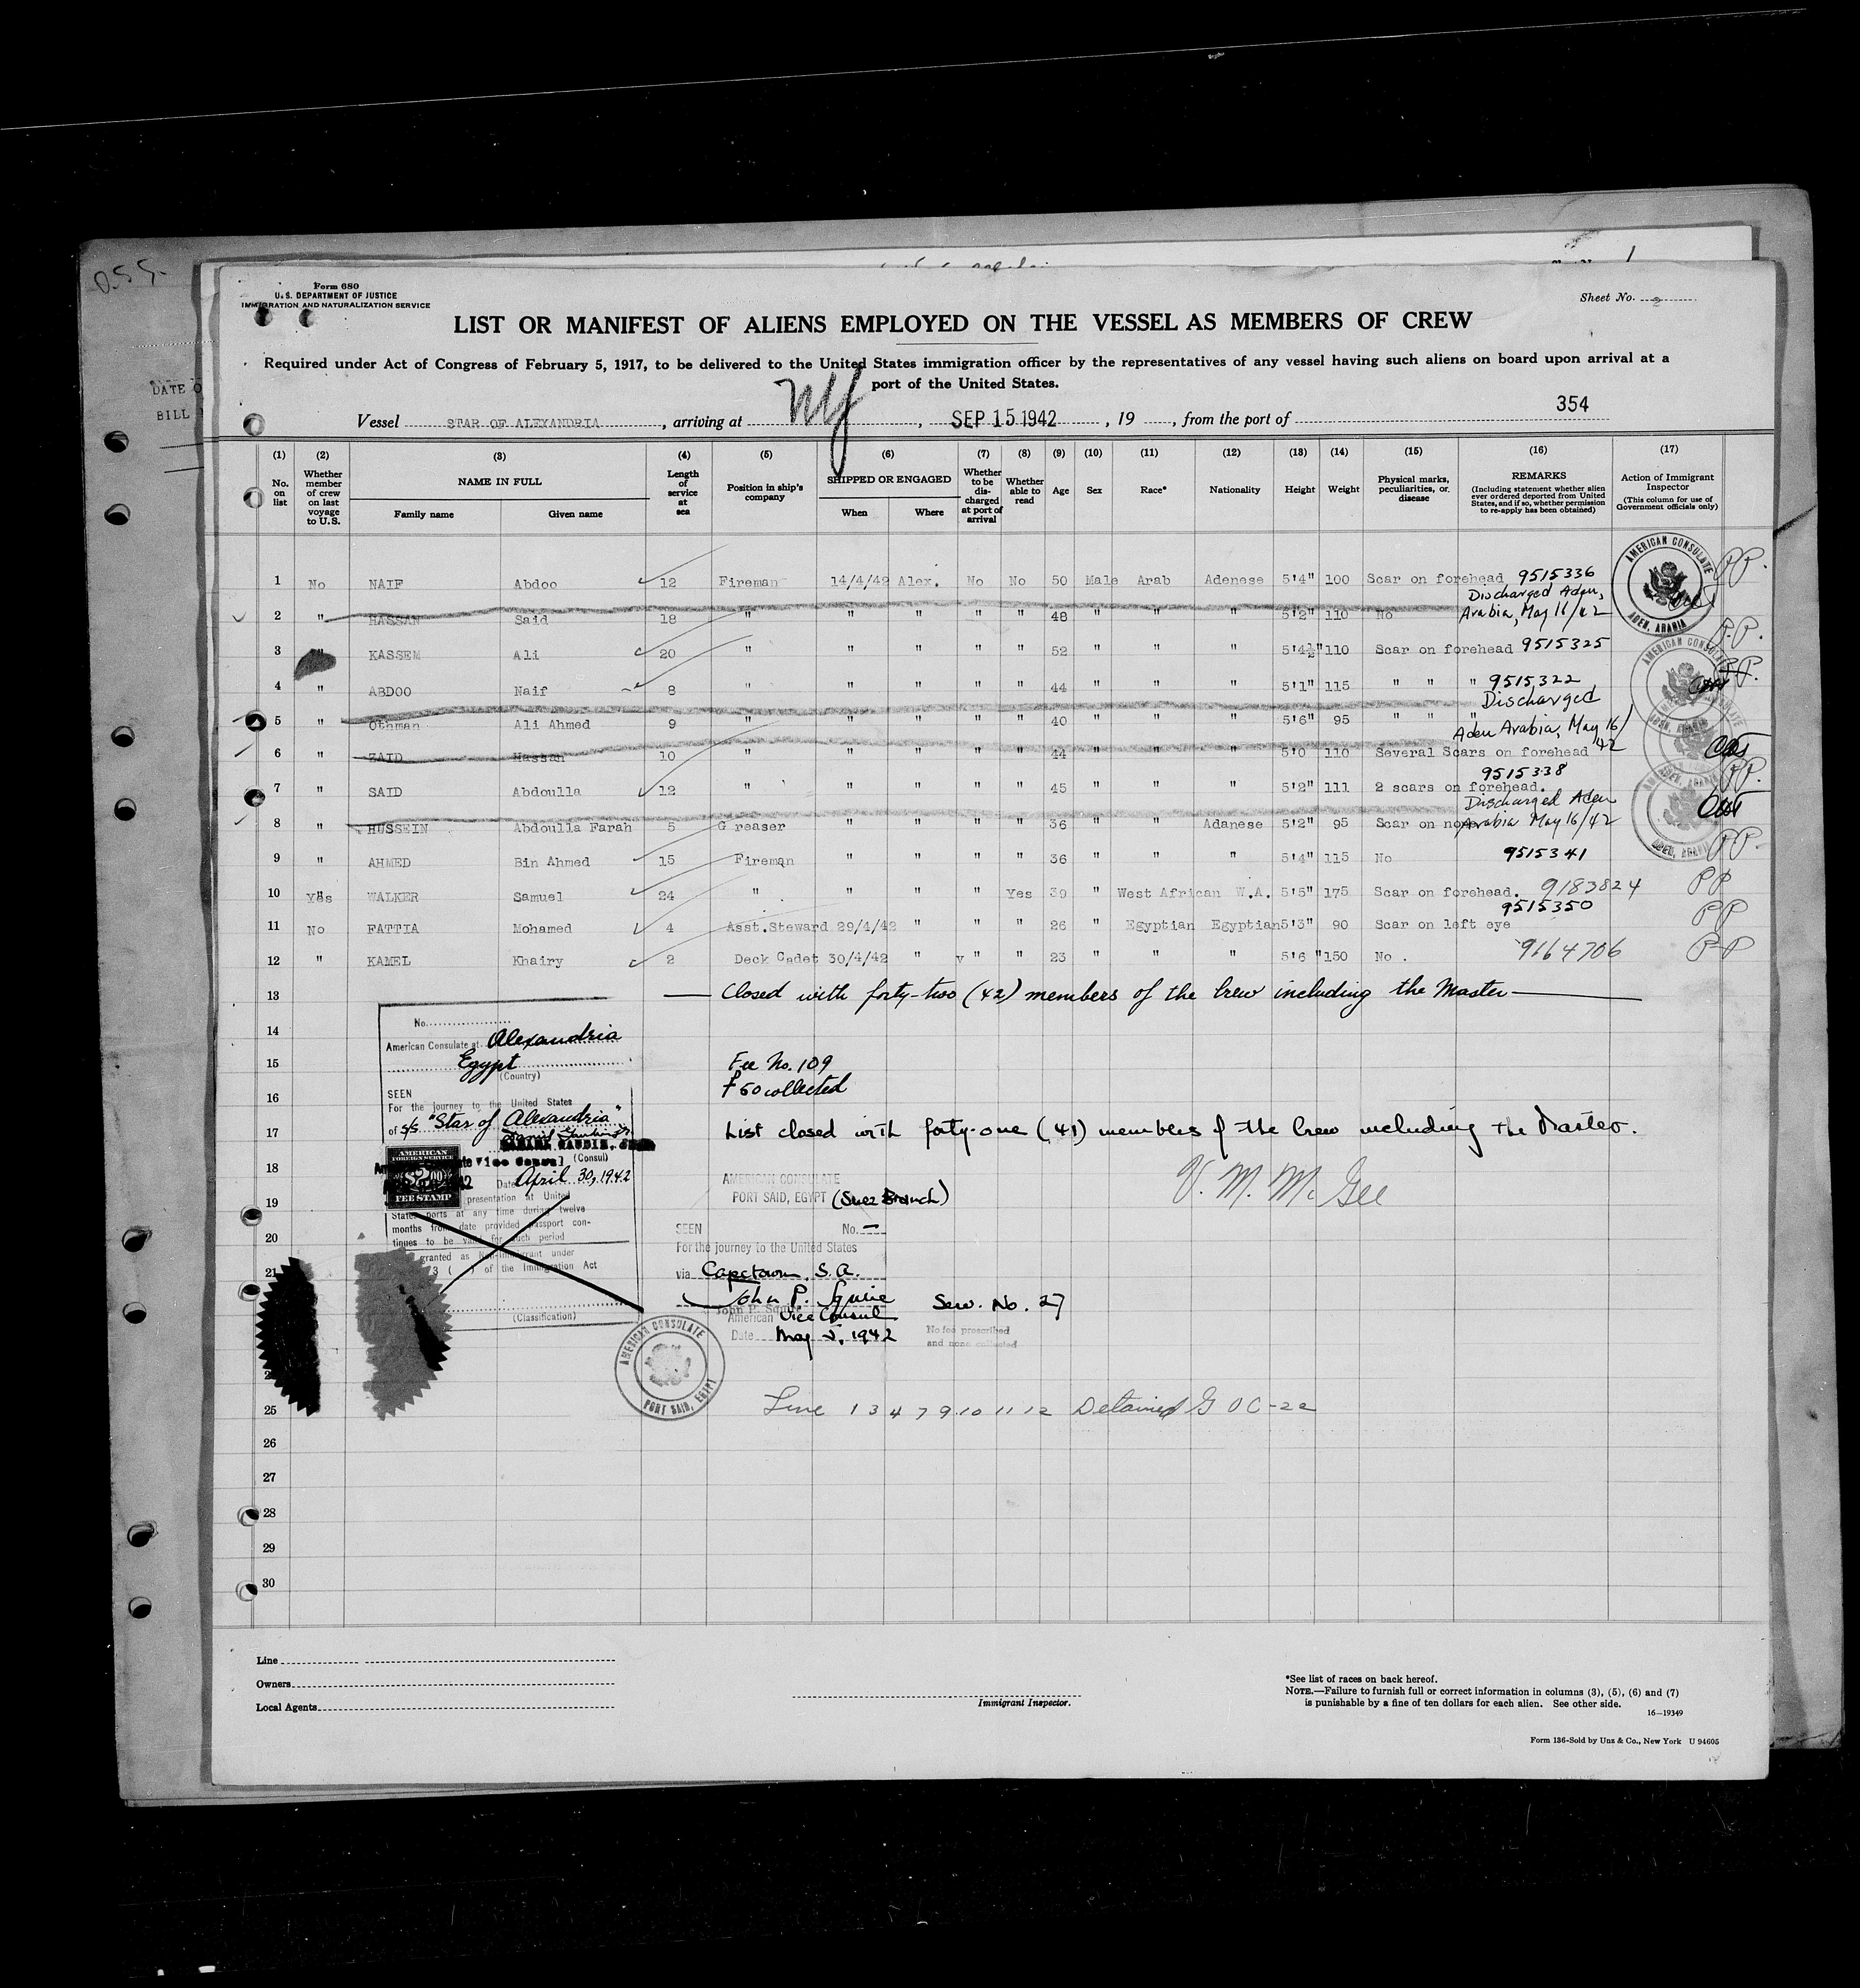 O.S.S.
DATE O
BILL
Form 680
U. S. DEPARTMENT OF JUSTICE
IMMIGRATION AND NATURALIZATION SERVICE
Sheet No. 2
LIST OR MANIFEST OF ALIENS EMPLOYED ON THE VESSEL AS MEMBERS OF CREW
Required under Act of Congress of February 5, 1917, to be delivered to the United States immigration officer by the representatives of any vessel having such aliens on board upon arrival at a
port of the United States.
354
Vessel STAR OF ALEXANDRIA, arriving at NY, SEP 15 1942, 19, from the port of
(1) (2) (3) (4) (5) (6) (7) (8) (9) (10) (11) (12) (13) (14) (15) (16) (17)
No. on list Whether member of crew on last voyage to U.S. NAME IN FULL Family name Given name Length of service at sea Position in ship's company SHIPPED OR ENGAGED When Where Whether to be discharged at port of arrival Whether able to read Age Sex Race* Nationality Height Weight Physical marks, peculiarities, or disease REMARKS (Including statement whether alien ever ordered deported from United States, and if so, whether permission to re-apply has been obtained) Action of Immigrant Inspector (This column for use of Government officials only)
1 No NAIF Abdoo 12 Fireman 14/4/42 Alex. No No 50 Male Arab Adenese 5'4" 100 Scar on forehead 9515336 PP.
Discharged Aden,
2 " HASSAN Said 18 " " " " " 48 " " " 5'2" 110 No Arabia, May 16/42
3 " KASSEM Ali 20 " " " " " 52 " " " 5'4½" 110 Scar on forehead 9515325 P.P.
4 " ABDOO Naif 8 " " " " " 44 " " " 5'1" 115 " " " 9515322 PP.
Discharged
5 " Othman Ali Ahmed 9 " " " " " 40 " " " 5'6" 95 " " "
Aden Arabia, May 16/42
6 " ZAID Hassan 10 " " " " " 44 " " " 5'0 110 Several Scars on forehead
9515338
7 " SAID Abdoulla 12 " " " " " 45 " " " 5'2" 111 2 scars on forehead. PP.
Discharged Aden
8 " HUSSEIN Abdoulla Farah 5 Greaser " " " " 36 " " Adanese 5'2" 95 Scar on nose Arabia May 16/42
9 " AHMED Bin Ahmed 15 Fireman " " " " 36 " " " 5'4" 115 No 9515341 PP.
10 Yes WALKER Samuel 24 " " " " Yes 39 " West African W.A. 5'5" 175 Scar on forehead. 9183824 PP
9515350
11 No FATTIA Mohamed 4 Asst.Steward 29/4/42 " " " 26 " Egyptian Egyptian 5'3" 90 Scar on left eye PP
12 " KAMEL Khairy 2 Deck Cadet 30/4/42 " " " 23 " " " 5'6 " 150 No . 9164706 PP
AMERICAN CONSULATE
ADEN, ARABIA
13 Closed with forty-two (42) members of the Crew including the Master
14
15
16
17
18
19
20
21
25
26
27
28
29
30
No.
American Consulate at Alexandria
Egypt
(Country)
SEEN
For the journey to the United States
of s/s "Star of Alexandria"
Vice Consul (Consul)
AMERICAN FOREIGN SERVICE
FEE STAMP
Date April 30, 1942
presentation at United
States ports at any time during twelve
months from date provided passport con-
tinues to be valid for such period
granted as Non-immigrant under
3 ( ) of the Immigration Act
(Classification)
Fee No. 109
₤50 collected
List closed with forty-one (41) members of the Crew including the Master.
V. M. McGee
AMERICAN CONSULATE
PORT SAID, EGYPT (Suez Branch)
SEEN No. —
For the journey to the United States
via Capetown, S.A.
John P. Squire
John P. Squire
American Vice Consul
Date May 5, 1942
Serv. No. 27
No fee prescribed
and none collected
AMERICAN CONSULATE
PORT SAID, EGYPT
Line 1 3 4 7 9 10 11 12 Detained G O C-22
Line
Owners
Local Agents
Immigrant Inspector.
*See list of races on back hereof.
NOTE.—Failure to furnish full or correct information in columns (3), (5), (6) and (7)
is punishable by a fine of ten dollars for each alien. See other side.
16—19349
Form 136-Sold by Unz & Co., New York U 94605